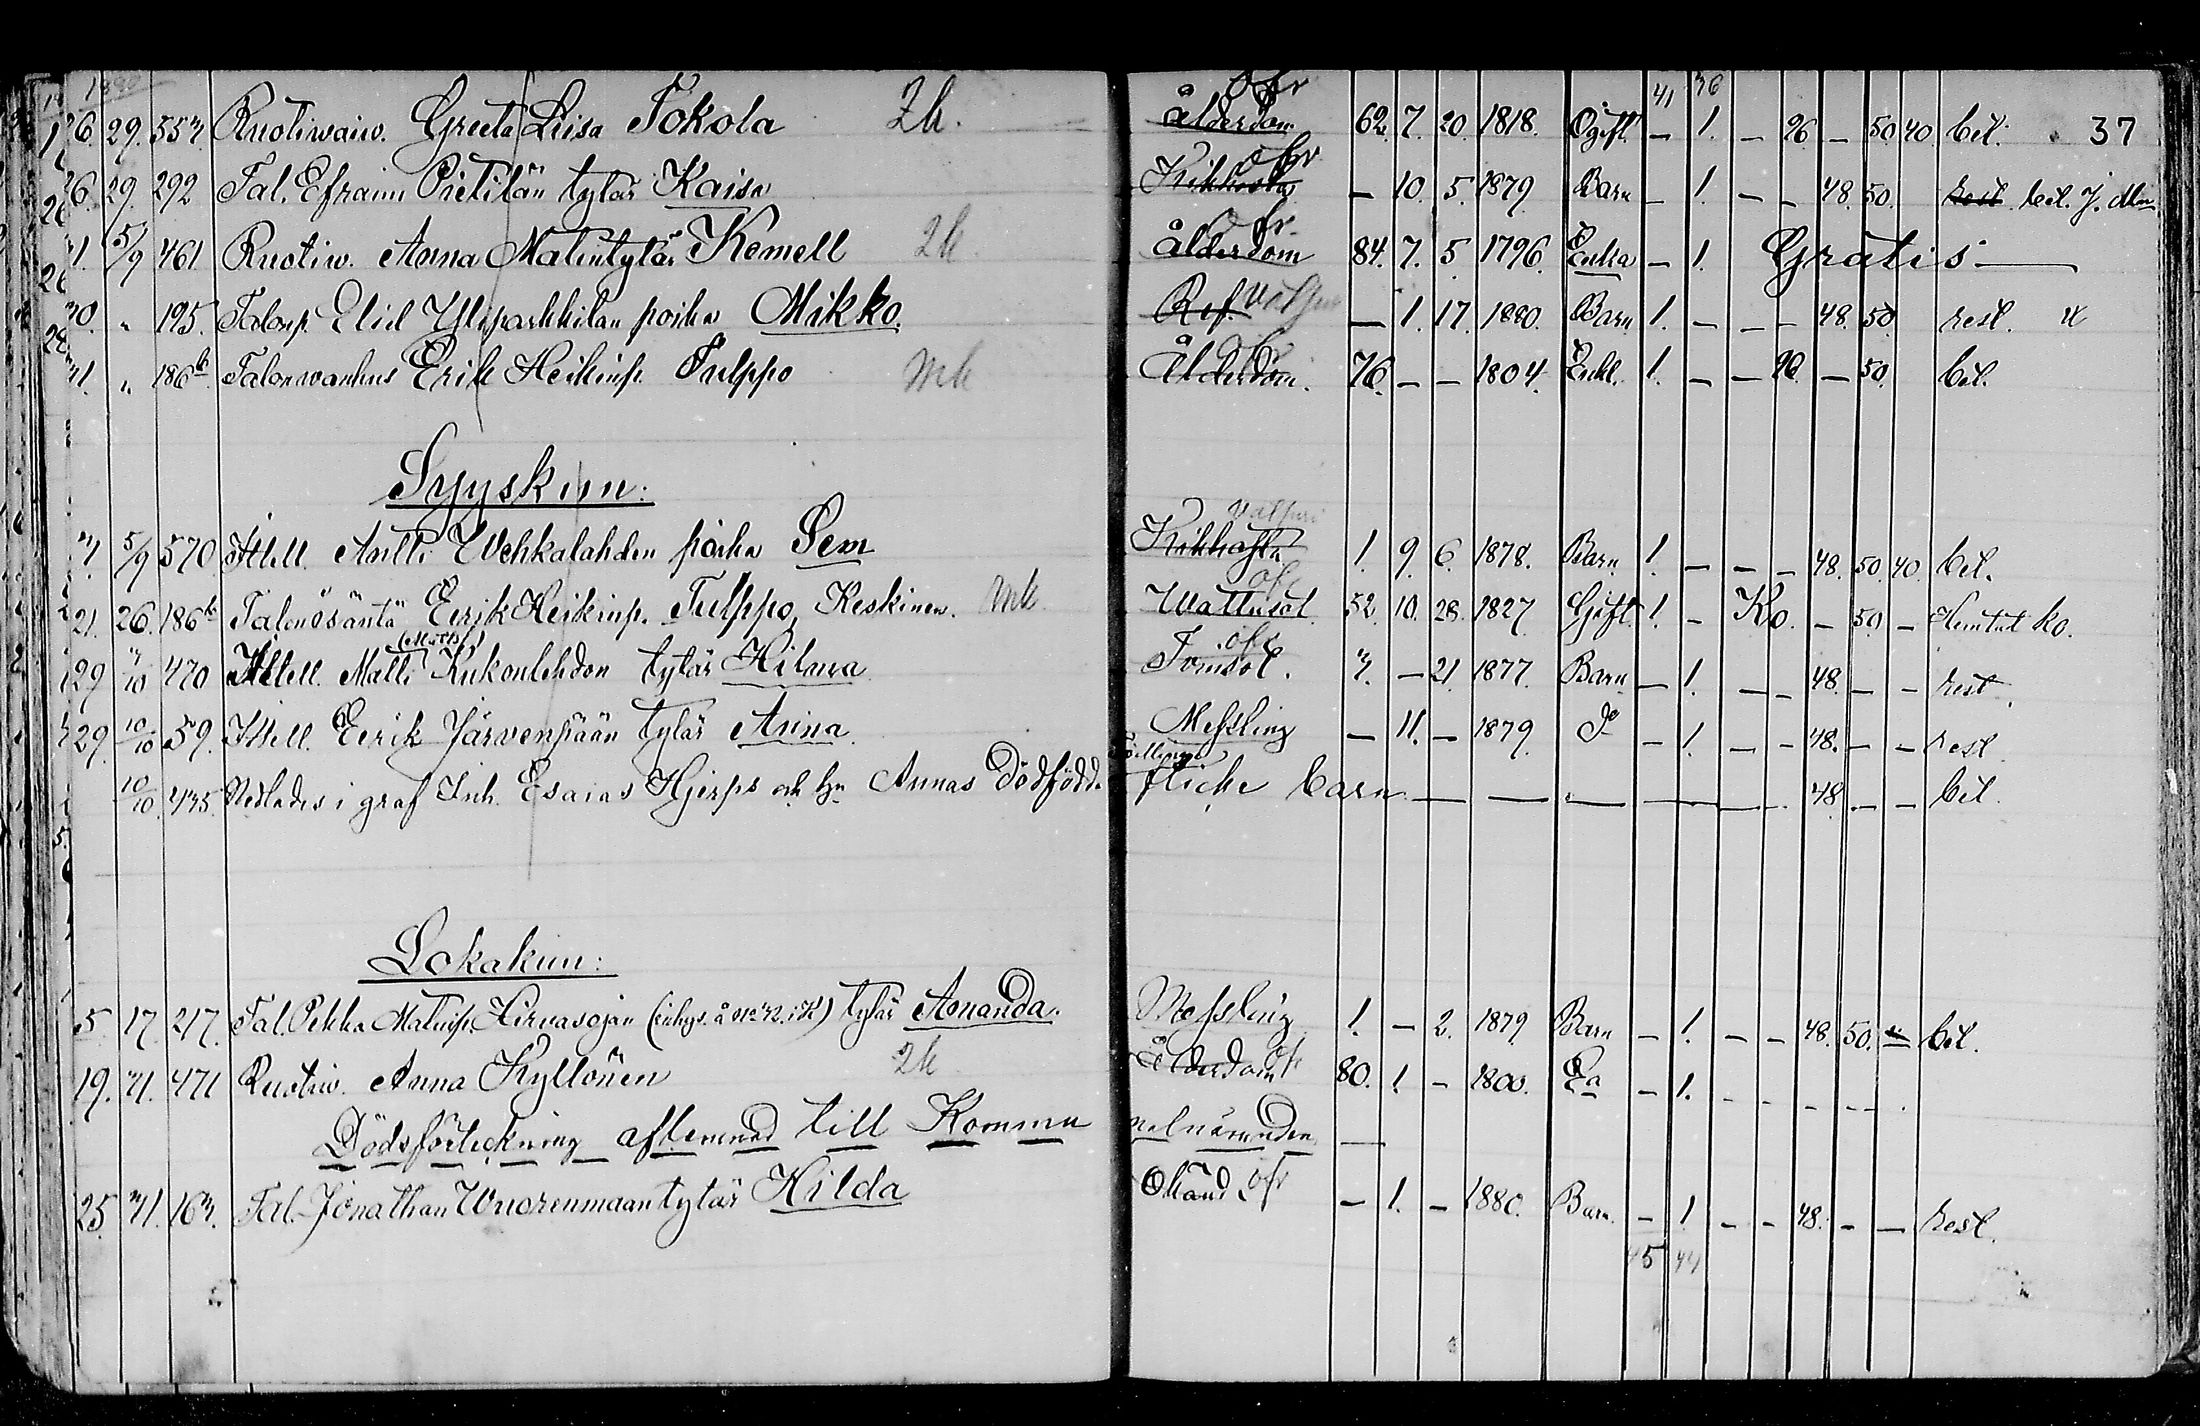 1880
26. 29. 553 Ruotiwaiw. Greeta Liisa Tokola 2k. Ålderdom ofr 62. 7. 20. 1818. Ogift. — 1. — 26 — 50 40 bet. 37
26. 29. 292 Tal. Efraim Pietilän tytär Kaisa Kikhosta ofr — 10. 5. 1879 Barn — 1. — — 48. 50. rest bet. J.
31. 5/9 461 Ruotiw. Anna Matintytär Kemell 2k Ålderdom ofr 84. 7. 5. 1796. Enka — 1. Gratis —
30. " 195. Talonp. Elid Yliparkkilan poika Mikko. Ref. — 1. 17. 1880. Barn 1. — — — 48. 50 rest.
31. " 186 b Talonwanhus Erik Heikinp. Tulppo mk Ålderdom. ofr 76. — — 1804. Enkl. 1. — — 26. — 50. bet.
Syyskuu:
3. 5/9 570 Itsell. Antti Wehkalahden poika Sem Kikhosta Valpuri 1. 9. 6. 1878. Barn. 1. — — — 48. 50. 40. bet.
21. 26. 186 b Talonisäntä Eerik Heikinp. Tulppo, Keskinen. mk. Wattusot. ofr 52. 10. 28. 1827. Gift. 1. — Ko. — 50. — Hemtat ko.
29 3/10 470 Itsell. Matti Kukonlehdon tytär Hilma Tvinsot. ofr 3. — 21. 1877. Barn — 1. — — 48. — — rest.
29. 10/10 59. Itsell. Eerik Järvenpään tytär Anna. Messling — 11. — 1879. Do — 1. — — 48. — — rest
10/10 435 Nedlades i graf Inh. Esaias Hjerps och hu Annas dödfödda tvilling flicke barn — — — — 48. — — bet.
Lokakuu:
5. 17. 217. Tal. Pekka Matinp. Hirvasojan tytär Amanda. Messling 1. — 2. 1879 Barn — 1. — — 48. 50. — bet.
19. 31. 471 Ruotiw. Anna Kyllönen 2k Ålderdom ofr 80. 1. — 1800. Ea — 1. — — — — —
Dödsförteckning aflemnad till Kommunalnämnden —
25. 31. 163. Tal. Jonathan Wuorenmaan tytär Hilda Okänd. ofr — 1. — 1880. Barn. — 1 — — 48. — — rest.
45 44